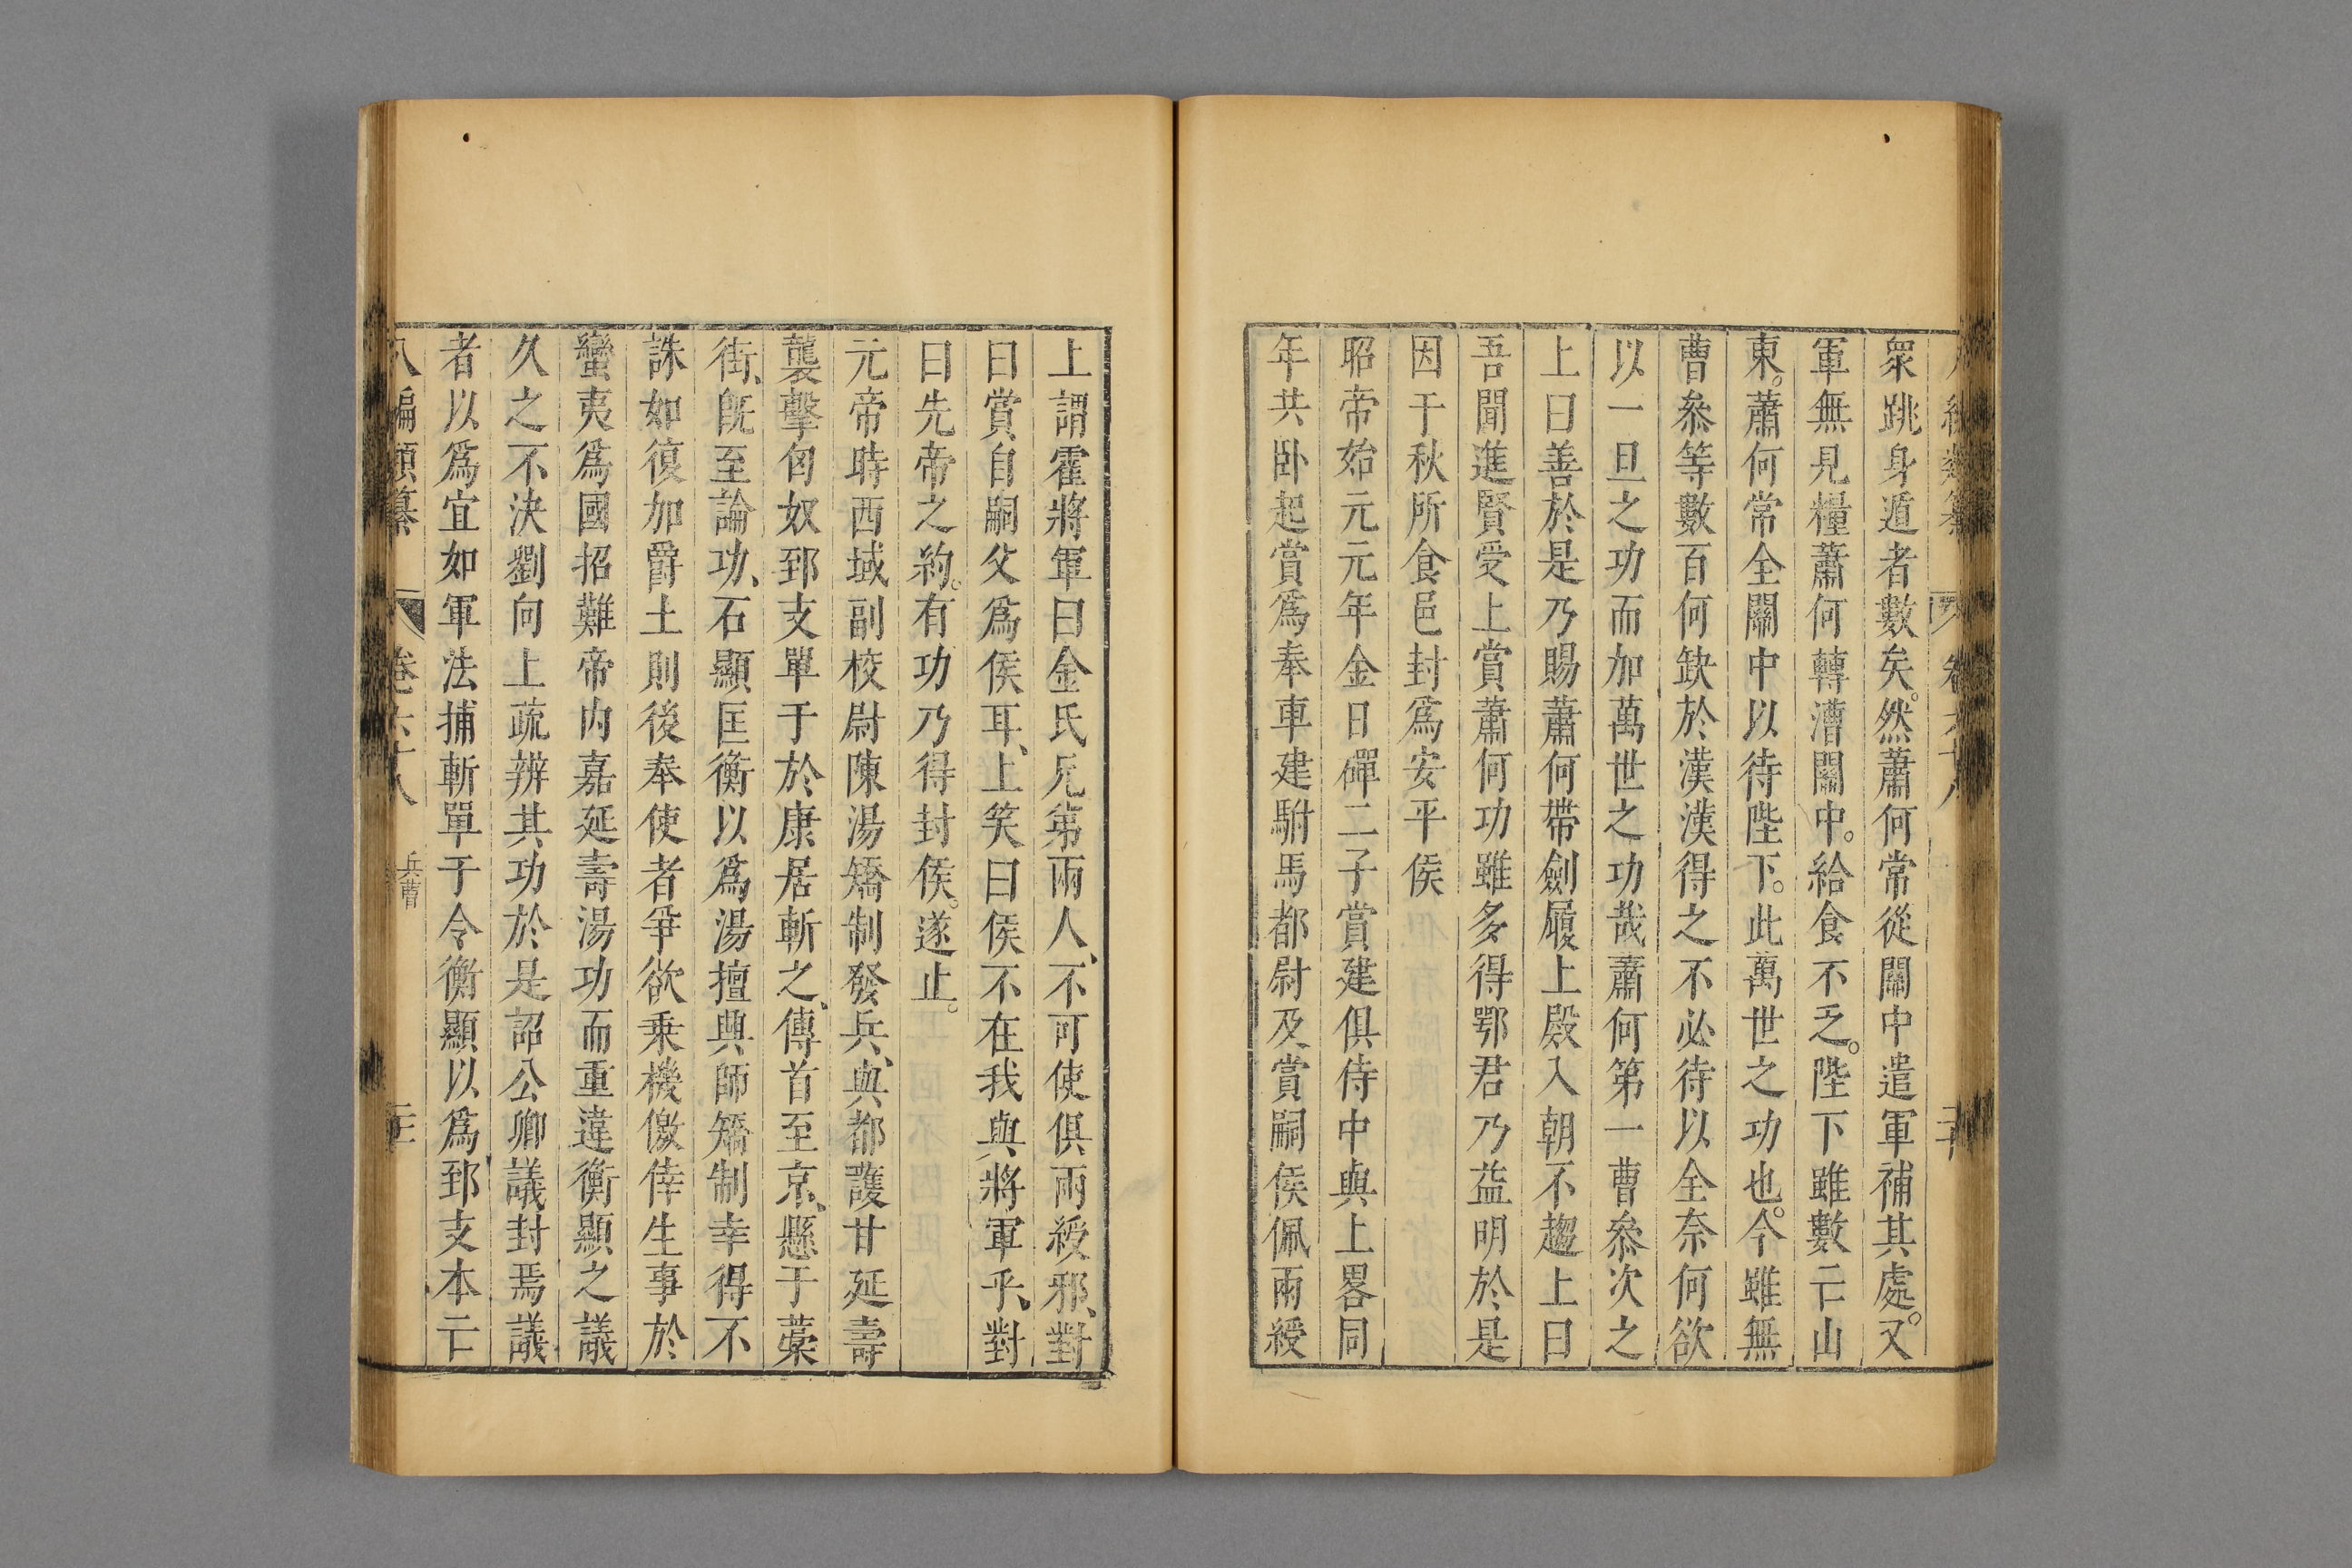 衆跳身遁者數矣。然蕭何常從關中遣軍補其處。又
軍無見糧蕭何轉漕關中。給食不乏。陛下雖數亡山
東。蕭何常全關中以待陛下。此萬世之功也。今雖無
曹叅等數百何缺於漢漢得之不必待以全奈何欲
以一旦之功而加萬世之功哉蕭何第一曹叅次之
上曰善於是乃賜蕭何帶劍履上殿入朝不趨上曰
吾聞進賢受上賞蕭何功雖多得鄂君乃益明於是
因于秋所食邑封爲安平侯
昭帝始元元年金日磾二子賞建俱侍中與上畧同
年共卧起賞爲奉車建駙馬都尉及賞嗣侯佩兩綬
上謂霍將軍曰金氏兄弟兩人、不可使俱兩綬邪、對
曰賞自嗣父爲侯耳、上笑曰侯不在我與將軍乎、對
曰先帝之約。有功乃得封侯。遂止。
元帝時西域副校尉陳湯矯制發兵、與都護甘延壽
襲擊匈奴郅支單于於康居斬之、傳首至京、懸于藁
街、旣至論功、石顯匡衡以爲湯擅興師矯制幸得不
誅如復加爵土則後奉使者爭欲乗機儌倖生事於
蠻夷爲國招難帝内嘉延壽湯功而重違衡顯之議
久之不決劉向上疏辨其功於是詔公卿議封焉議
者以爲宜如軍法捕斬單于令衡顯以爲郅支本亡
八編類纂 卷六十八 兵曹